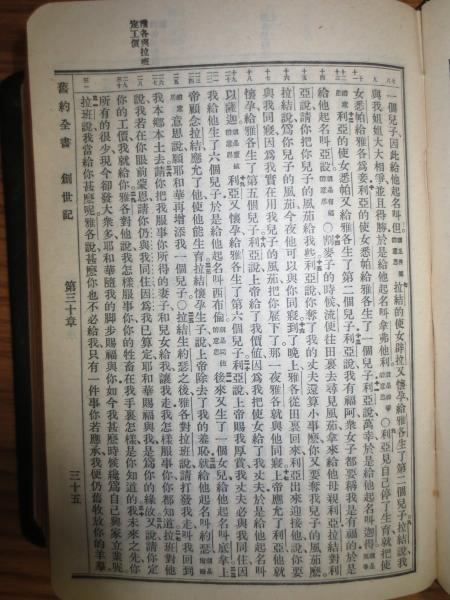 雅各與拉班
定工價
一個兒子因此給他起名叫但就是伸冤的意思拉結的使女辟拉又懷孕給雅各生了第二個兒子拉結說我
與我姐姐大大相爭並且得勝於是給他起名叫拿弗他利就是相爭的意思○利亞見自己停了生育就把使
女悉帕給雅各為妾利亞的使女悉帕給雅各生了一個兒子利亞說萬幸於是給他起名叫迦得就是萬幸的意思
利亞的使女悉帕又給雅各生了第二個兒子利亞說我有福阿眾女子都要稱我是有福的於是
給他起名叫亞設就是有福的意思○割麥子的時候流便往田裏去尋見風茄拿來給他母親利亞拉結對利
亞說請你把你兒子的風茄給我些利亞說你奪了我的丈夫還算小事麼你又要奪我兒子的風茄麼
拉結說為你兒子的風茄今夜他可以與你同寢到了晚上雅各從田裏回來利亞出來迎接他說你要
與我同寢因為我實在用我兒子的風茄把你雇下了那一夜雅各就與他同寢上帝應允了利亞他就
懷孕給雅各生了第五個兒子利亞說上帝給了我價值因為我把使女給了我丈夫於是給他起名叫
以薩迦就是價值的意思利亞又懷孕給雅各生了第六個兒子利亞說上帝賜我厚賞我丈夫必與我同住因
我給他生了六個兒子於是給他起名叫西布倫就是同住的意思後來又生了一個女兒給他起名叫底拿上
帝顧念拉結應允了他使他能生育拉結懷孕生子說上帝除去了我的羞恥就給他起名叫約瑟就是增添的
意思意思說願耶和華再增添我一個兒子○拉結生約瑟之後雅各對拉班說請打發我走叫我回到
我本鄉本土去請你把我服事你所得的妻子和兒女給我讓我走我怎樣服事你你都知道拉班對他
說我若在你眼前蒙恩請你仍與我同住因為我已算定耶和華賜福與我是為你的緣故又說請你定
你的工價我就給你雅各對他說我怎樣服事你你的牲畜在我手裏怎樣是你知道的我未來之先你
所有的很少現今卻發大眾多耶和華隨我的腳步賜福與你如今我甚麼時候纔為自己興家立業呢
拉班說我當給你甚麼呢雅各說甚麼你也不必給我只有一件事你若應承我便仍舊牧放你的羊羣
舊約全書 創世記 第三十章 三十五